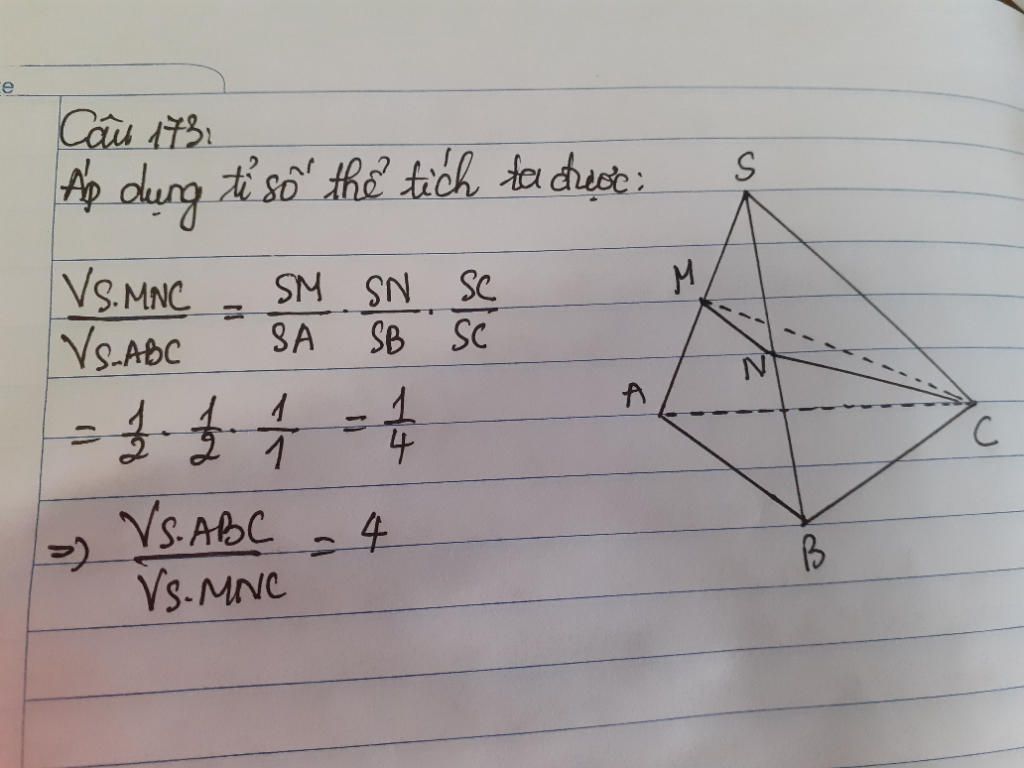 e
Câu 173:
Áp dụng tỉ số thể tích ta được:
VS.MNC / VS.ABC = SM/SA . SN/SB . SC/SC
= 1/2 . 1/2 . 1/1 = 1/4
=> VS.ABC / VS.MNC = 4
S
M
N
A
C
B